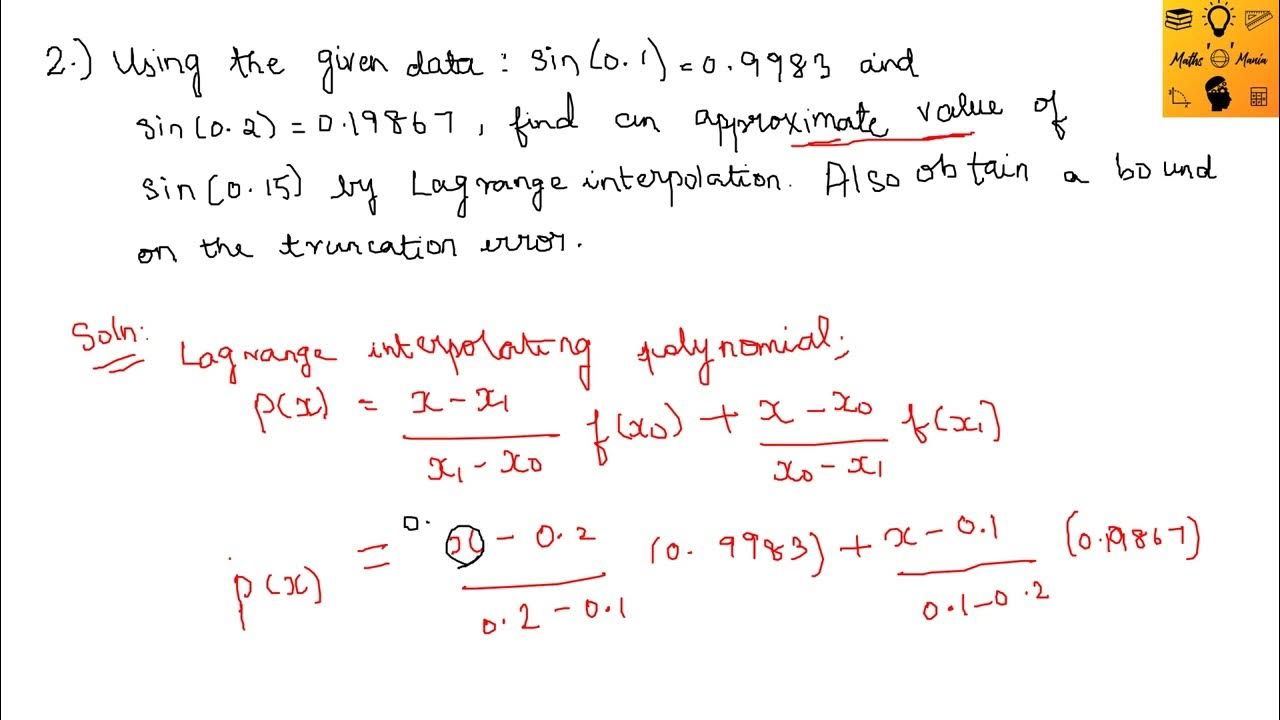 Maths Mania
2.) Using the given data : sin(0.1) = 0.9983 and
sin(0.2) = 0.19867, find an approximate value of
sin(0.15) by Lagrange interpolation. Also obtain a bound
on the truncation error.
Soln:
Lagrange interpolating polynomial;
p(x) = x - x₁ / x₁ - x₀ f(x₀) + x - x₀ / x₀ - x₁ f(x₁)
0.
p(x) = x - 0.2 / 0.2 - 0.1 (0.9983) + x - 0.1 / 0.1 - 0.2 (0.19867)